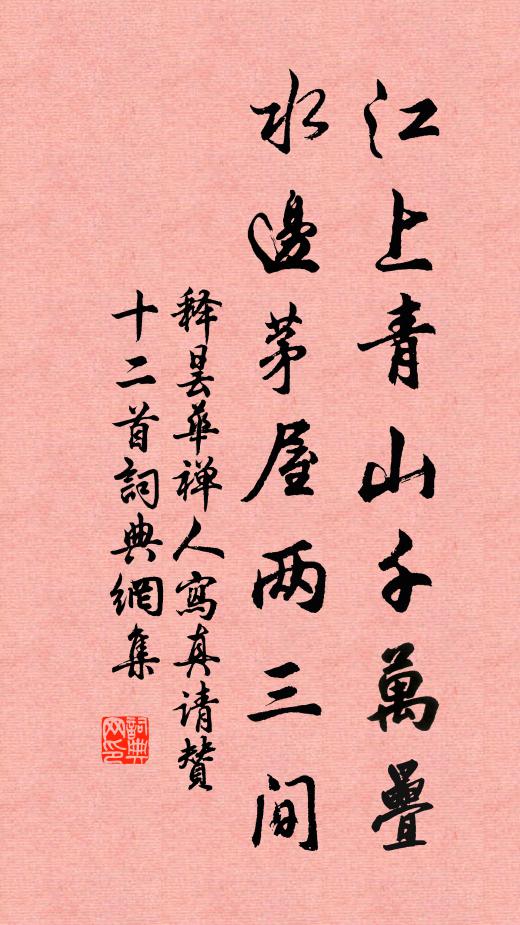 江上青山千萬疊
水邊茅屋两三间
释昙華禅人寫真请赞
十二首詞典網集
詞典
网印